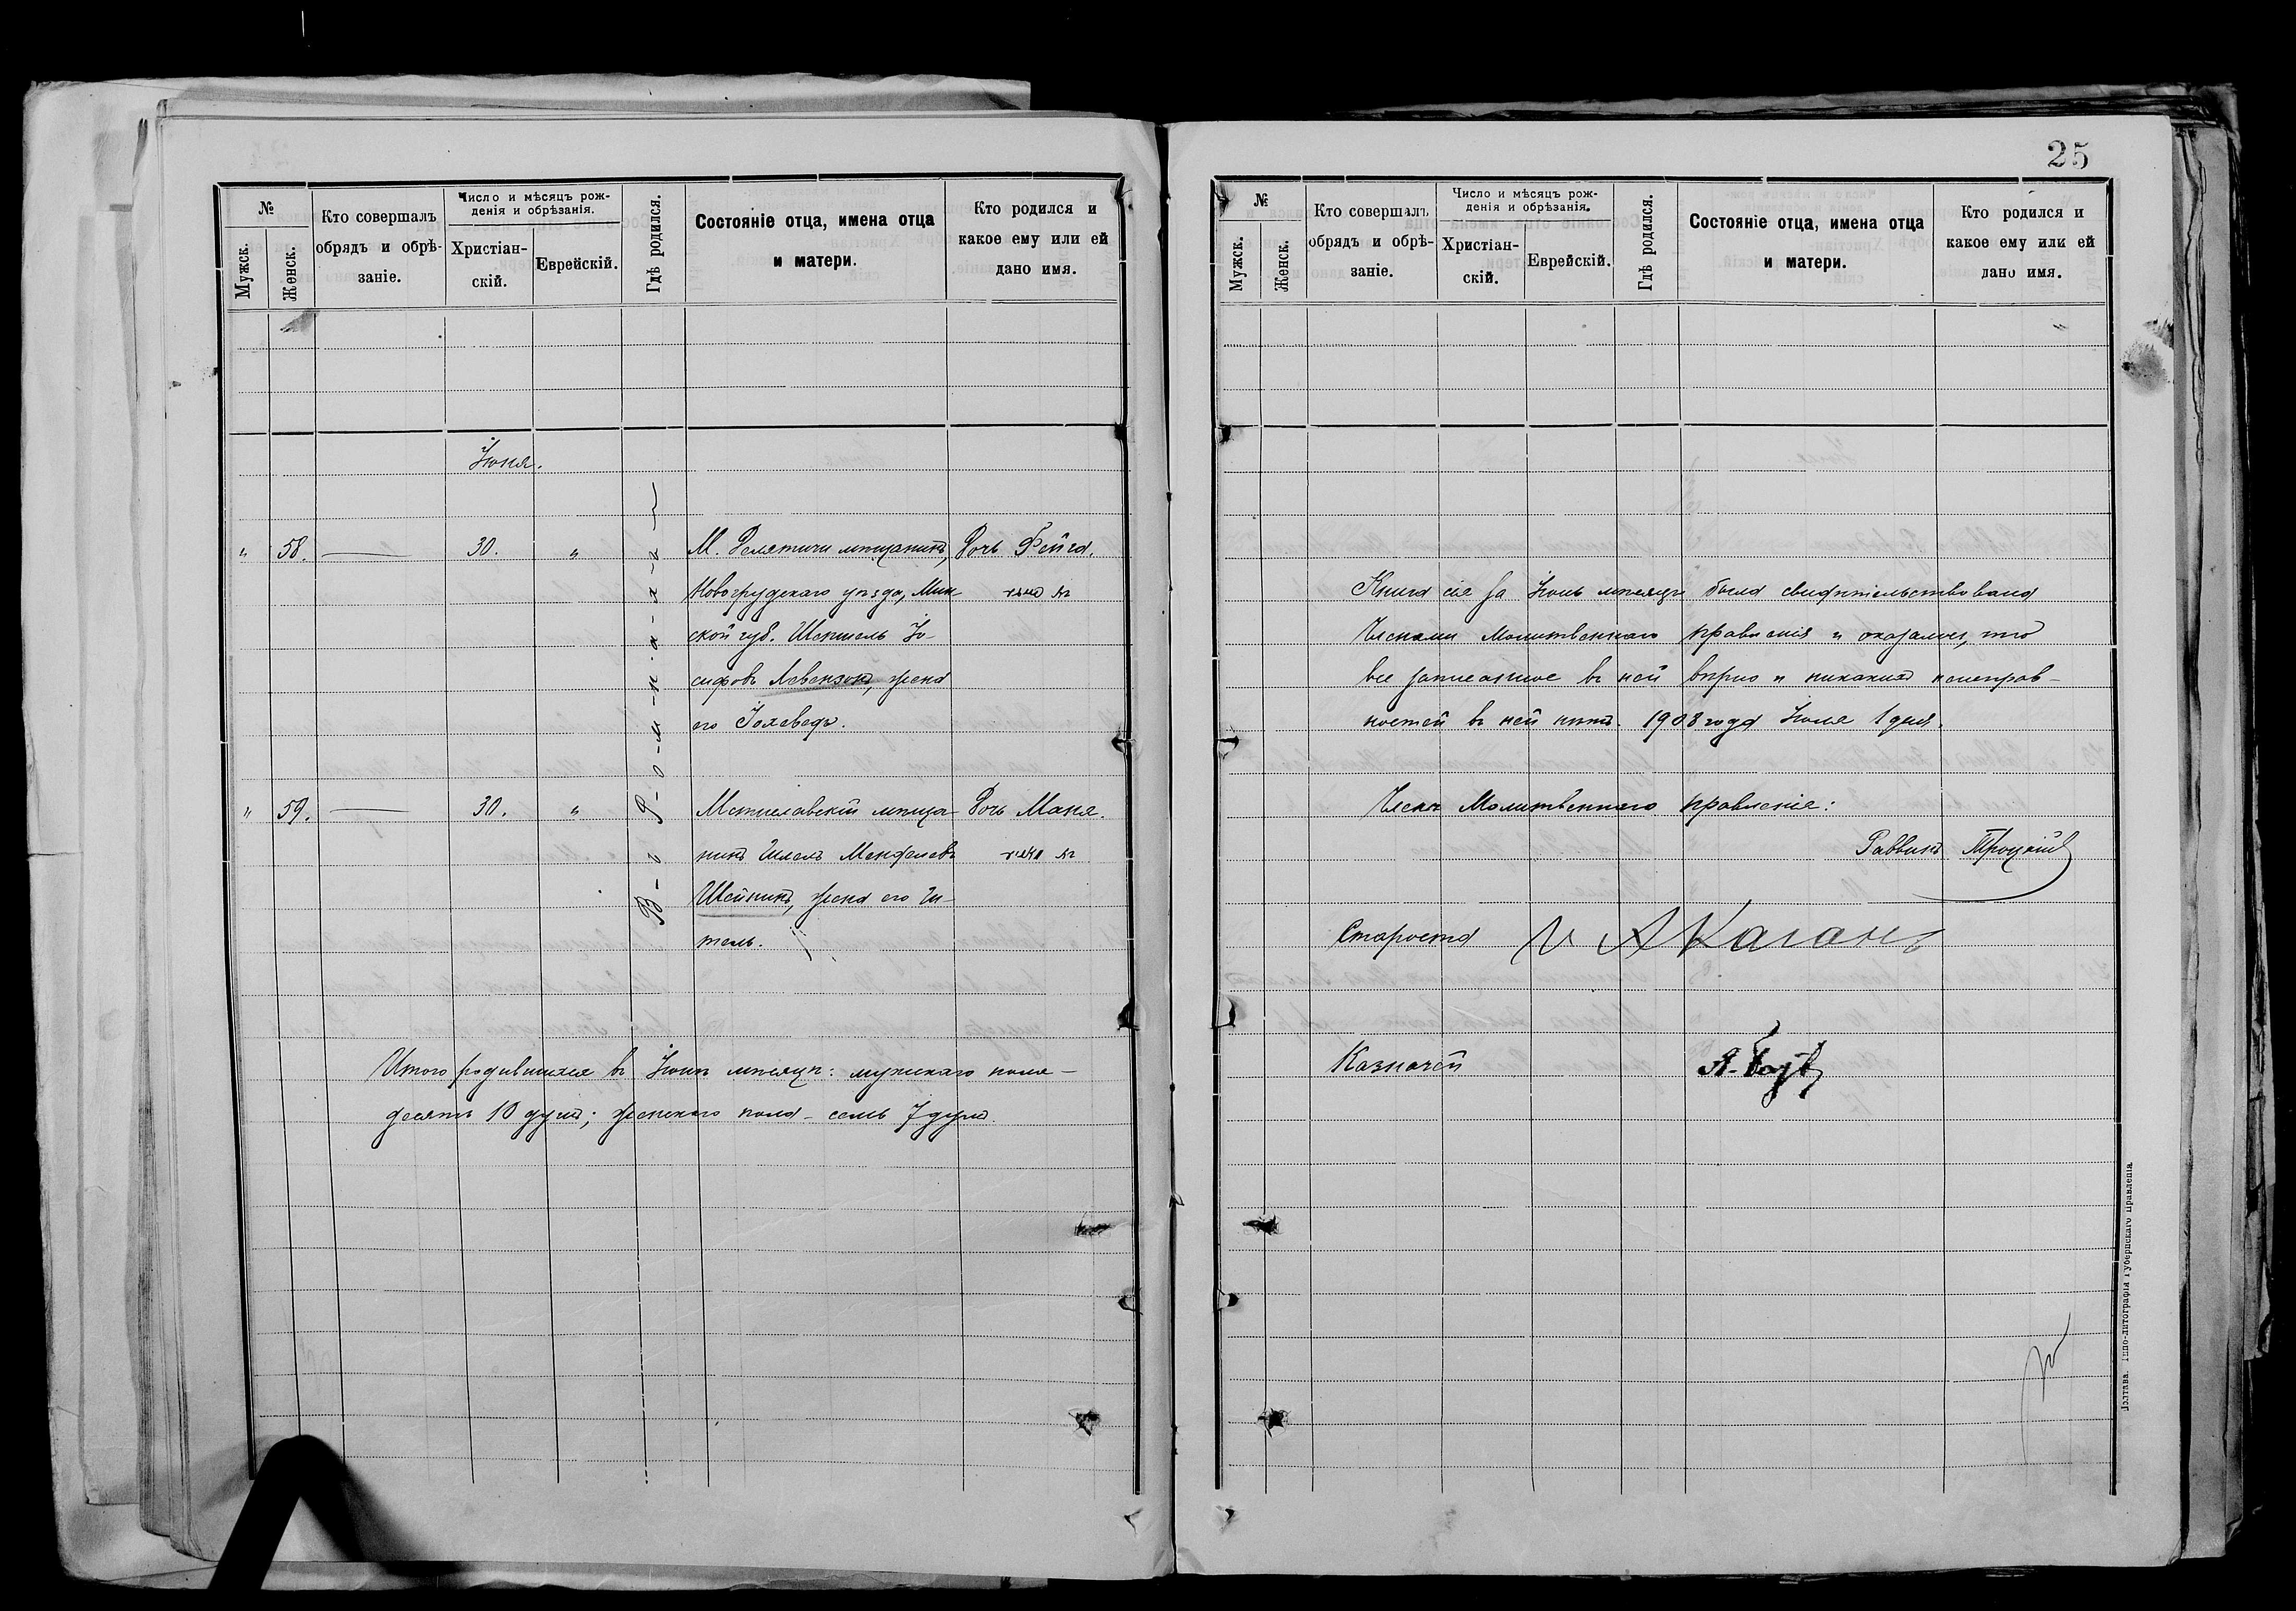 №
Мужск.
Женск.
Кто совершалъ
обрядъ и обрѣ-
заніе.
Число и мѣсяцъ рож-
денія и обрѣзанія.
Христіан-
скій.
Еврейскій.
Гдѣ родился.
Состояніе отца, имена отца
и матери.
Кто родился и
какое ему или ей
дано имя.
Іюня.
В-ъ Р-о-м-н-а-х-ъ
" 58. 30. " М. Делятичи мѣщанинъ, Дочь Фейга.
Новогрудскаго уѣзда, Мин-
ской губ. Шепшель Іо-
сифовъ Левензонъ, жена
его Іохеведъ.
" 59. 30. " Мстиславскій мѣща- Дочь Маня.
нинъ Шлема Менделевъ
Шейнинъ, жена его Ши-
тель.
Итого родившихся въ Іюнѣ мѣсяцѣ: мужскаго пола-
десять 10 душъ; женскаго пола - семь 7 душъ.
25
№
Мужск.
Женск.
Кто совершалъ
обрядъ и обрѣ-
заніе.
Число и мѣсяцъ рож-
денія и обрѣзанія.
Христіан-
скій.
Еврейскій.
Гдѣ родился.
Состояніе отца, имена отца
и матери.
Кто родился и
какое ему или ей
дано имя.
Книга сія за Іюнь мѣсяцъ была свидѣтельствована
Членами Молитвеннаго правленія и оказалось, что
все записанное въ ней вѣрно и никакихъ неисправ-
ностей въ ней нѣтъ. 1903 года Іюля 1 дня.
Члены Молитвеннаго правленія:
Раввинъ Троцкій
Староста И А Каганъ
Казначей
Полтава. Типо-литографія Губернскаго Правленія